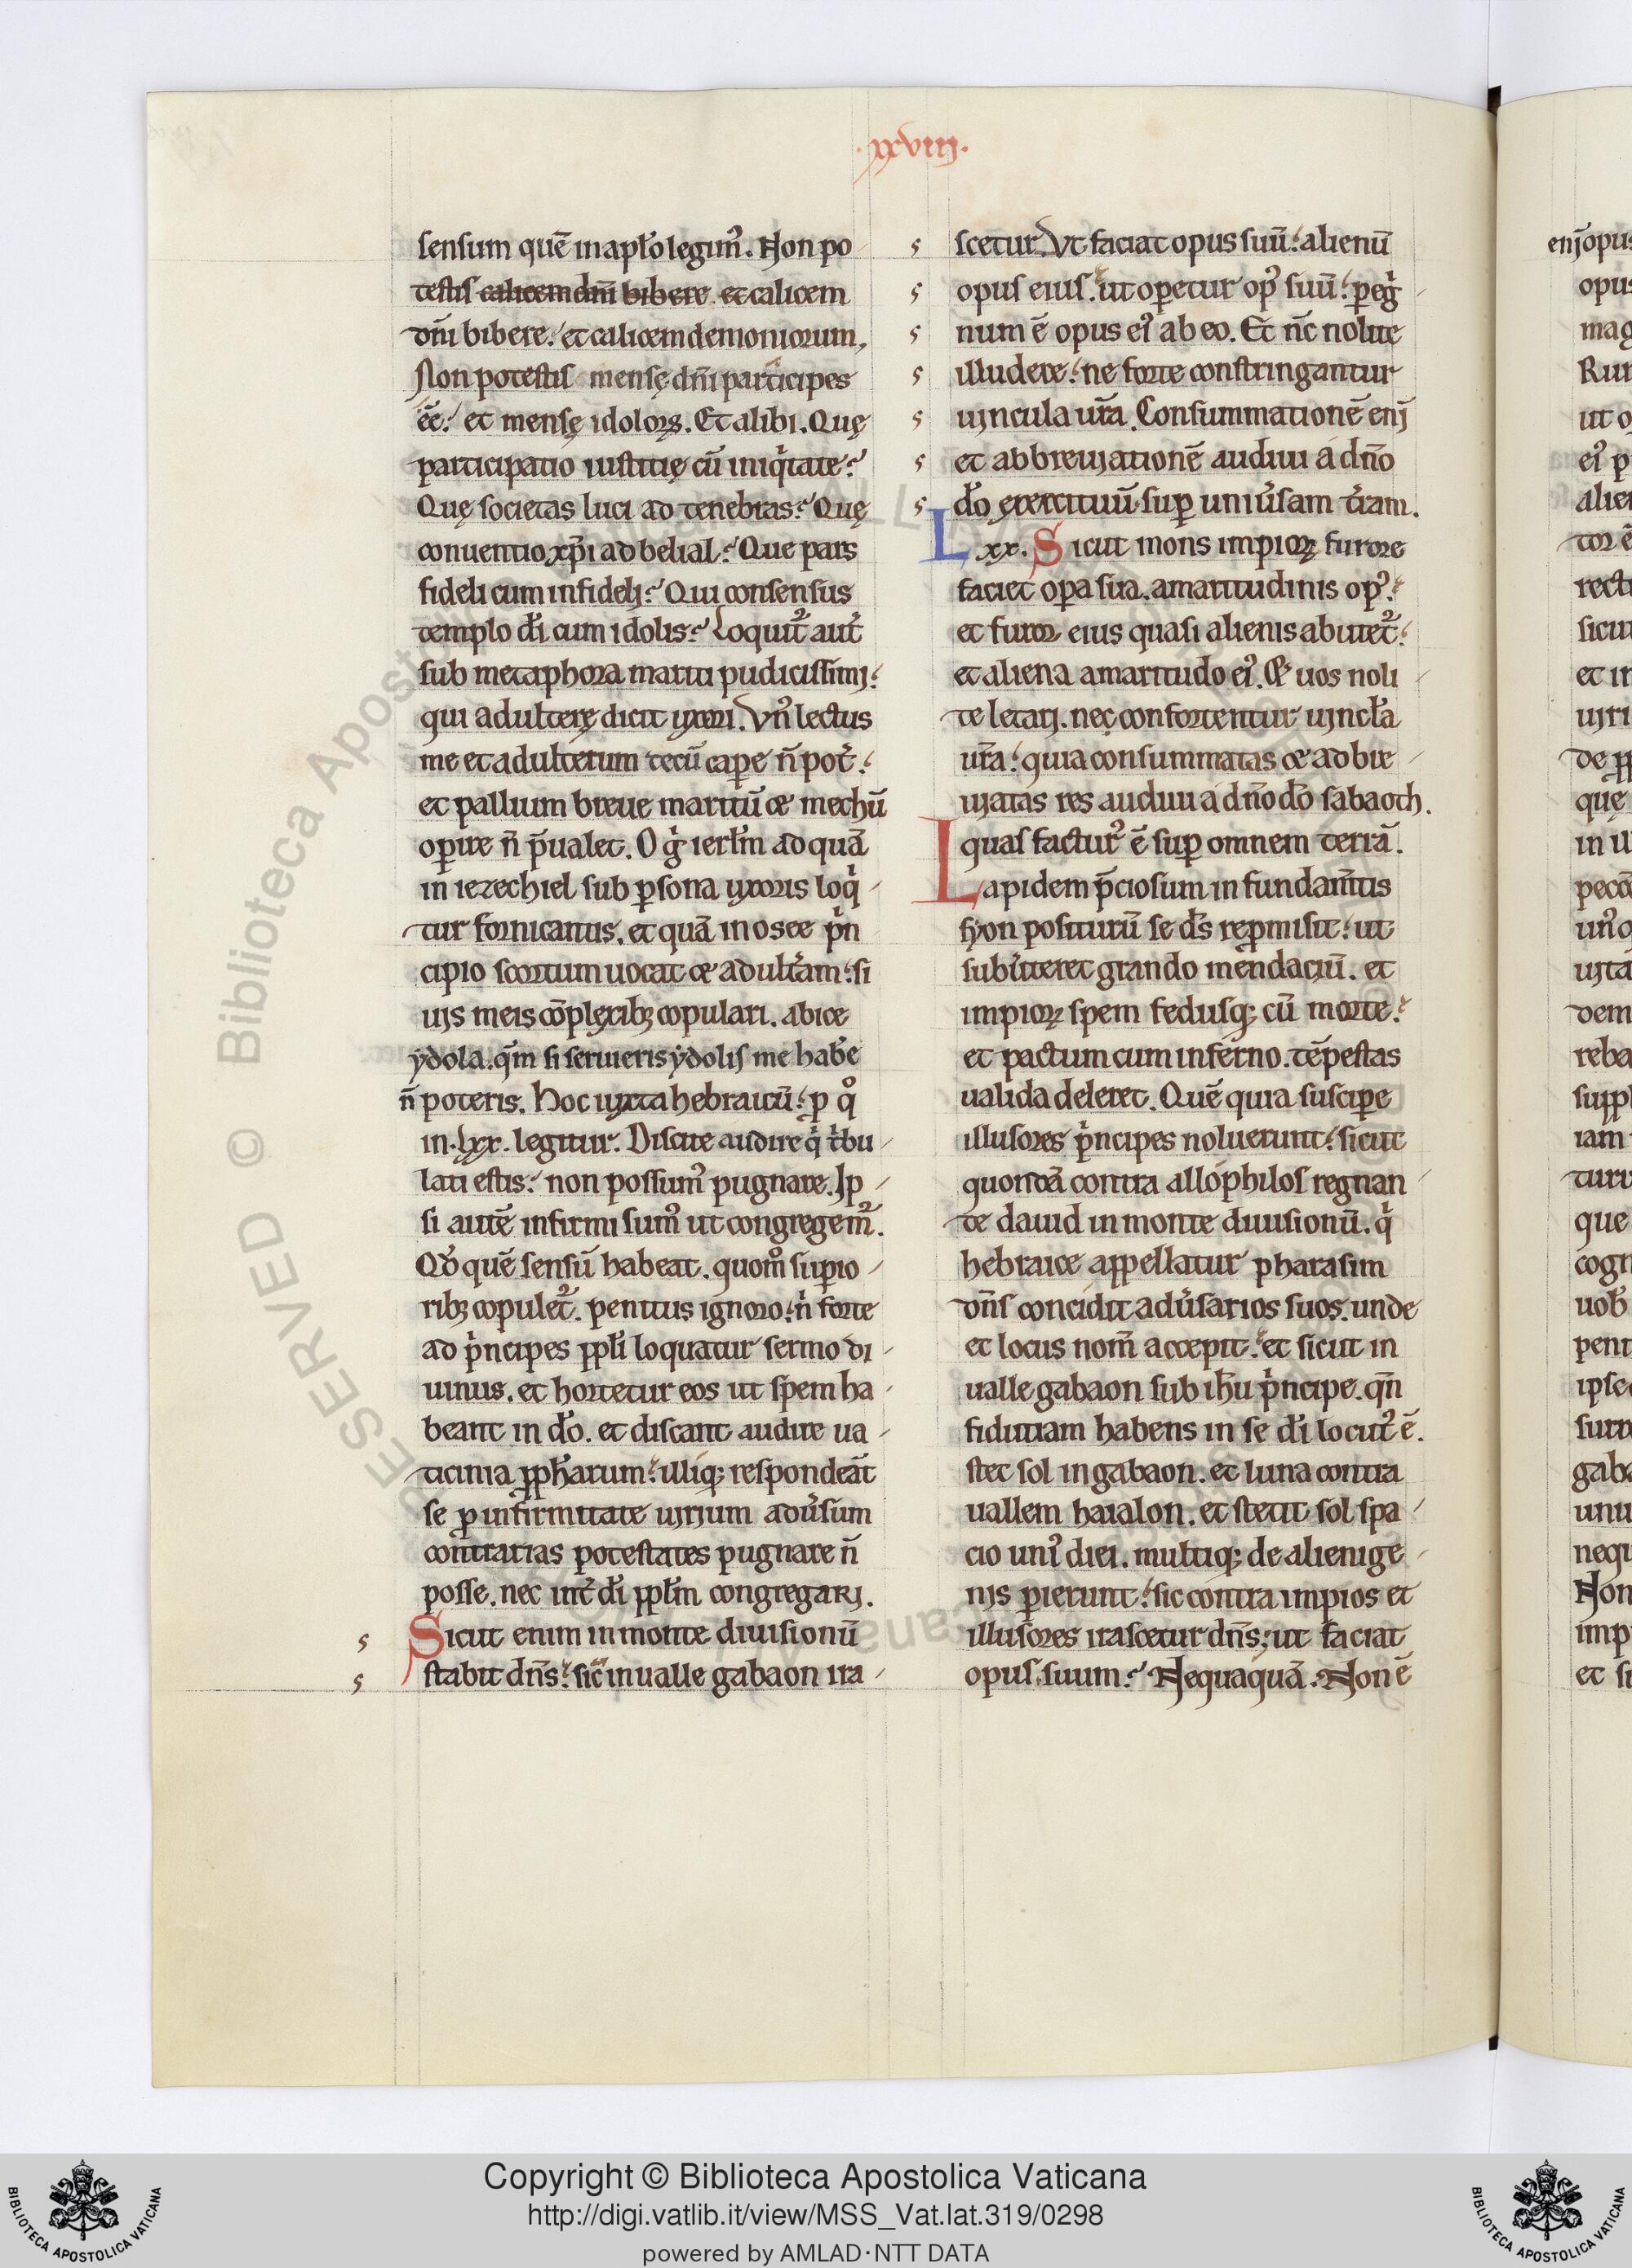 ·xxviii·
sensum quē in apl̄o legim᷒. Non po
testis calicem dn̄i bibere. et calicem
dn̄i bibere. et calicem demoniorum.
Non potestis mensę dn̄i participes
ēē. et mensę idoloꝝ. Et alibi. Quę
participatio iustitię cū iniq̇tate?
Quę societas luci ad tenebras? Quę
conuentio xp̄i ad belial? Que pars
fideli cum infideli? Qui consensus
templo dī cum idolis? Loquit᷒ aut̄
sub metaphora mariti pudicissimj.
qui adulterę dicit uxori. Vn᷒ lectus
me et adulterum tecū caꝑe n̄ pot̄.
et pallium breue maritū & mechū
oꝑire n̄ p̄ualet. O g̊ ierl̄m ad quā
in iezechiel sub ꝑsona uxoris loq̇
tur fornicantis. et quā in osee ṗn
cipio scortum uocat & adult̄am. si
uis meis cōplexibꝫ copulari. abice
ẏdola. qm̄ si seruieris ẏdolis me hab̄e
n̄ poteris. Hoc iuxta hebraicū. ꝑ q̊
in .lxx. legitur. Discite audire q̇ ṫbu
lati estis. non possum᷒ pugnare. Ip
si autē infirmi sum᷒ ut congregem᷒.
Qd̄ quē sensū habeat. quom̊ suꝑio
ribꝫ copulet᷒. penitus ignoro. ṅ forte
ad ṗncipes ppl̄i loquatur sermo di
uinus. et hortetur eos ut spem ha
beant in do. et discant audire ua
ticinia pph̄arum. illiqꝫ respondeāt
se ꝑ infirmitate uirium adūsum
contrarias potestates pugnare n̄
posse. nec int̄ dī ppl̄m congregari.
Sicut enim in monte diuisionū
stabit dn̄s. sic̄ in ualle gabaon ira
scetur. Vt faciat opus suū. alienū
opus eius. ut oꝑetur op᷒ suū. ꝑeġ
num ē opus ei᷒ ab eo. Et nc̄ nolite
illudere. ne forte constringantur
uincula ur̄a. Consummationē enj
et abbreuiationē audiui a dn̄o
do exercituū suꝑ uniūsam t̄ram.
Lxx. Sicut mons impioꝝ furore
faciet oꝑa sua. amaritudinis op᷒.
et furor eius quasi alienis abutet᷒.
et aliena amaritudo ei᷒. & uos noli
te letari. nec confortentur uincl̄a
ur̄a. quia consummatas & adbre
uiatas res audiui a dn̄o do sabaoth.
quas factur᷒ ē suꝑ omnem terrā.
Lapidem p̄ciosum in fundam̄tis
syon positurū se ds̄ repromisit. ut
subūteret grando mendaciū. et
impioꝝ spem fedusqꝫ cū morte.
et pactum cum inferno. tēpestas
ualida deleret. Quē quia susciꝑe
illusores ṗncipes noluerunt. sicut
quondā contra allophilos regnan
te dauid in monte diuisionū. q̇
hebraice appellatur pharasim
dn̄s concidit adūsarios suos. unde
et locus nom̄ accepit. et sicut in
ualle gabaon sub ih̄u ṗncipe. qn̄
fiduciam habens in se dī locut᷒ ē.
stet sol in gabaon. et luna contra
uallem haialon. et stetit sol spa
cio uni᷒ diei. multiqꝫ de alienige
nis ꝑierunt. sic contra impios et
illusores irascetur dn̄s. ut faciat
opus suum? Nequaquā. Non ē
Copyright © Biblioteca Apostolica Vaticana
http://digi.vatlib.it/view/MSS_Vat.lat.319/0298
powered by AMLAD·NTT DATA